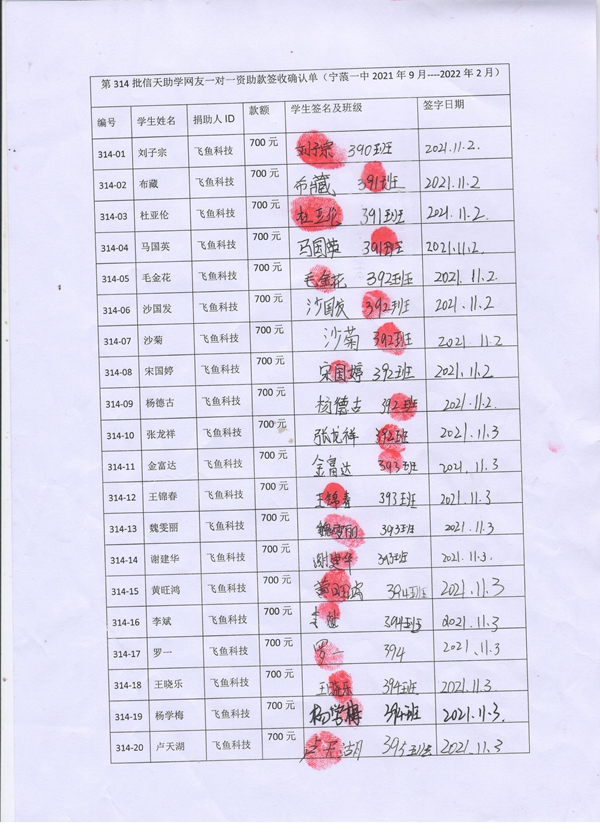 第 314 批信天助学网友一对一资助款签收确认单（宁蒗一中 2021 年 9 月----2022 年 2 月）
编号 学生姓名 捐助人 ID 款额 学生签名及班级 签字日期
314-01 刘子宗 飞鱼科技 700 元 刘子宗 390班 2021.11.2.
314-02 布藏 飞鱼科技 700 元 布藏 391班 2021.11.2.
314-03 杜亚伦 飞鱼科技 700 元 杜亚伦 391班 2021.11.2.
314-04 马国英 飞鱼科技 700 元 马国英 391班 2021.11.2.
314-05 毛金花 飞鱼科技 700 元 毛金花 392班 2021.11.2
314-06 沙国发 飞鱼科技 700 元 沙国发 392班 2021.11.2
314-07 沙菊 飞鱼科技 700 元 沙菊 392班 2021.11.2
314-08 宋国婷 飞鱼科技 700 元 宋国婷 392班 2021.11.2
314-09 杨德古 飞鱼科技 700 元 杨德古 392班 2021.11.2.
314-10 张龙祥 飞鱼科技 700 元 张龙祥 392班 2021.11.3
314-11 金富达 飞鱼科技 700 元 金富达 393班 2021.11.3
314-12 王锦春 飞鱼科技 700 元 王锦春 393班 2021.11.3
314-13 魏雯丽 飞鱼科技 700 元 魏雯丽 393班 2021.11.3
314-14 谢建华 飞鱼科技 700 元 谢建华 393班 2021.11.3.
314-15 黄旺鸿 飞鱼科技 700 元 黄旺鸿 394班 2021.11.3
314-16 李斌 飞鱼科技 700 元 李斌 394班 2021.11.3
314-17 罗一 飞鱼科技 700 元 罗一 394 2021.11.3
314-18 王晓乐 飞鱼科技 700 元 王晓乐 394班 2021.11.3
314-19 杨学梅 飞鱼科技 700 元 杨学梅 394班 2021.11.3.
314-20 卢天湖 飞鱼科技 700 元 卢天湖 393班 2021.11.3